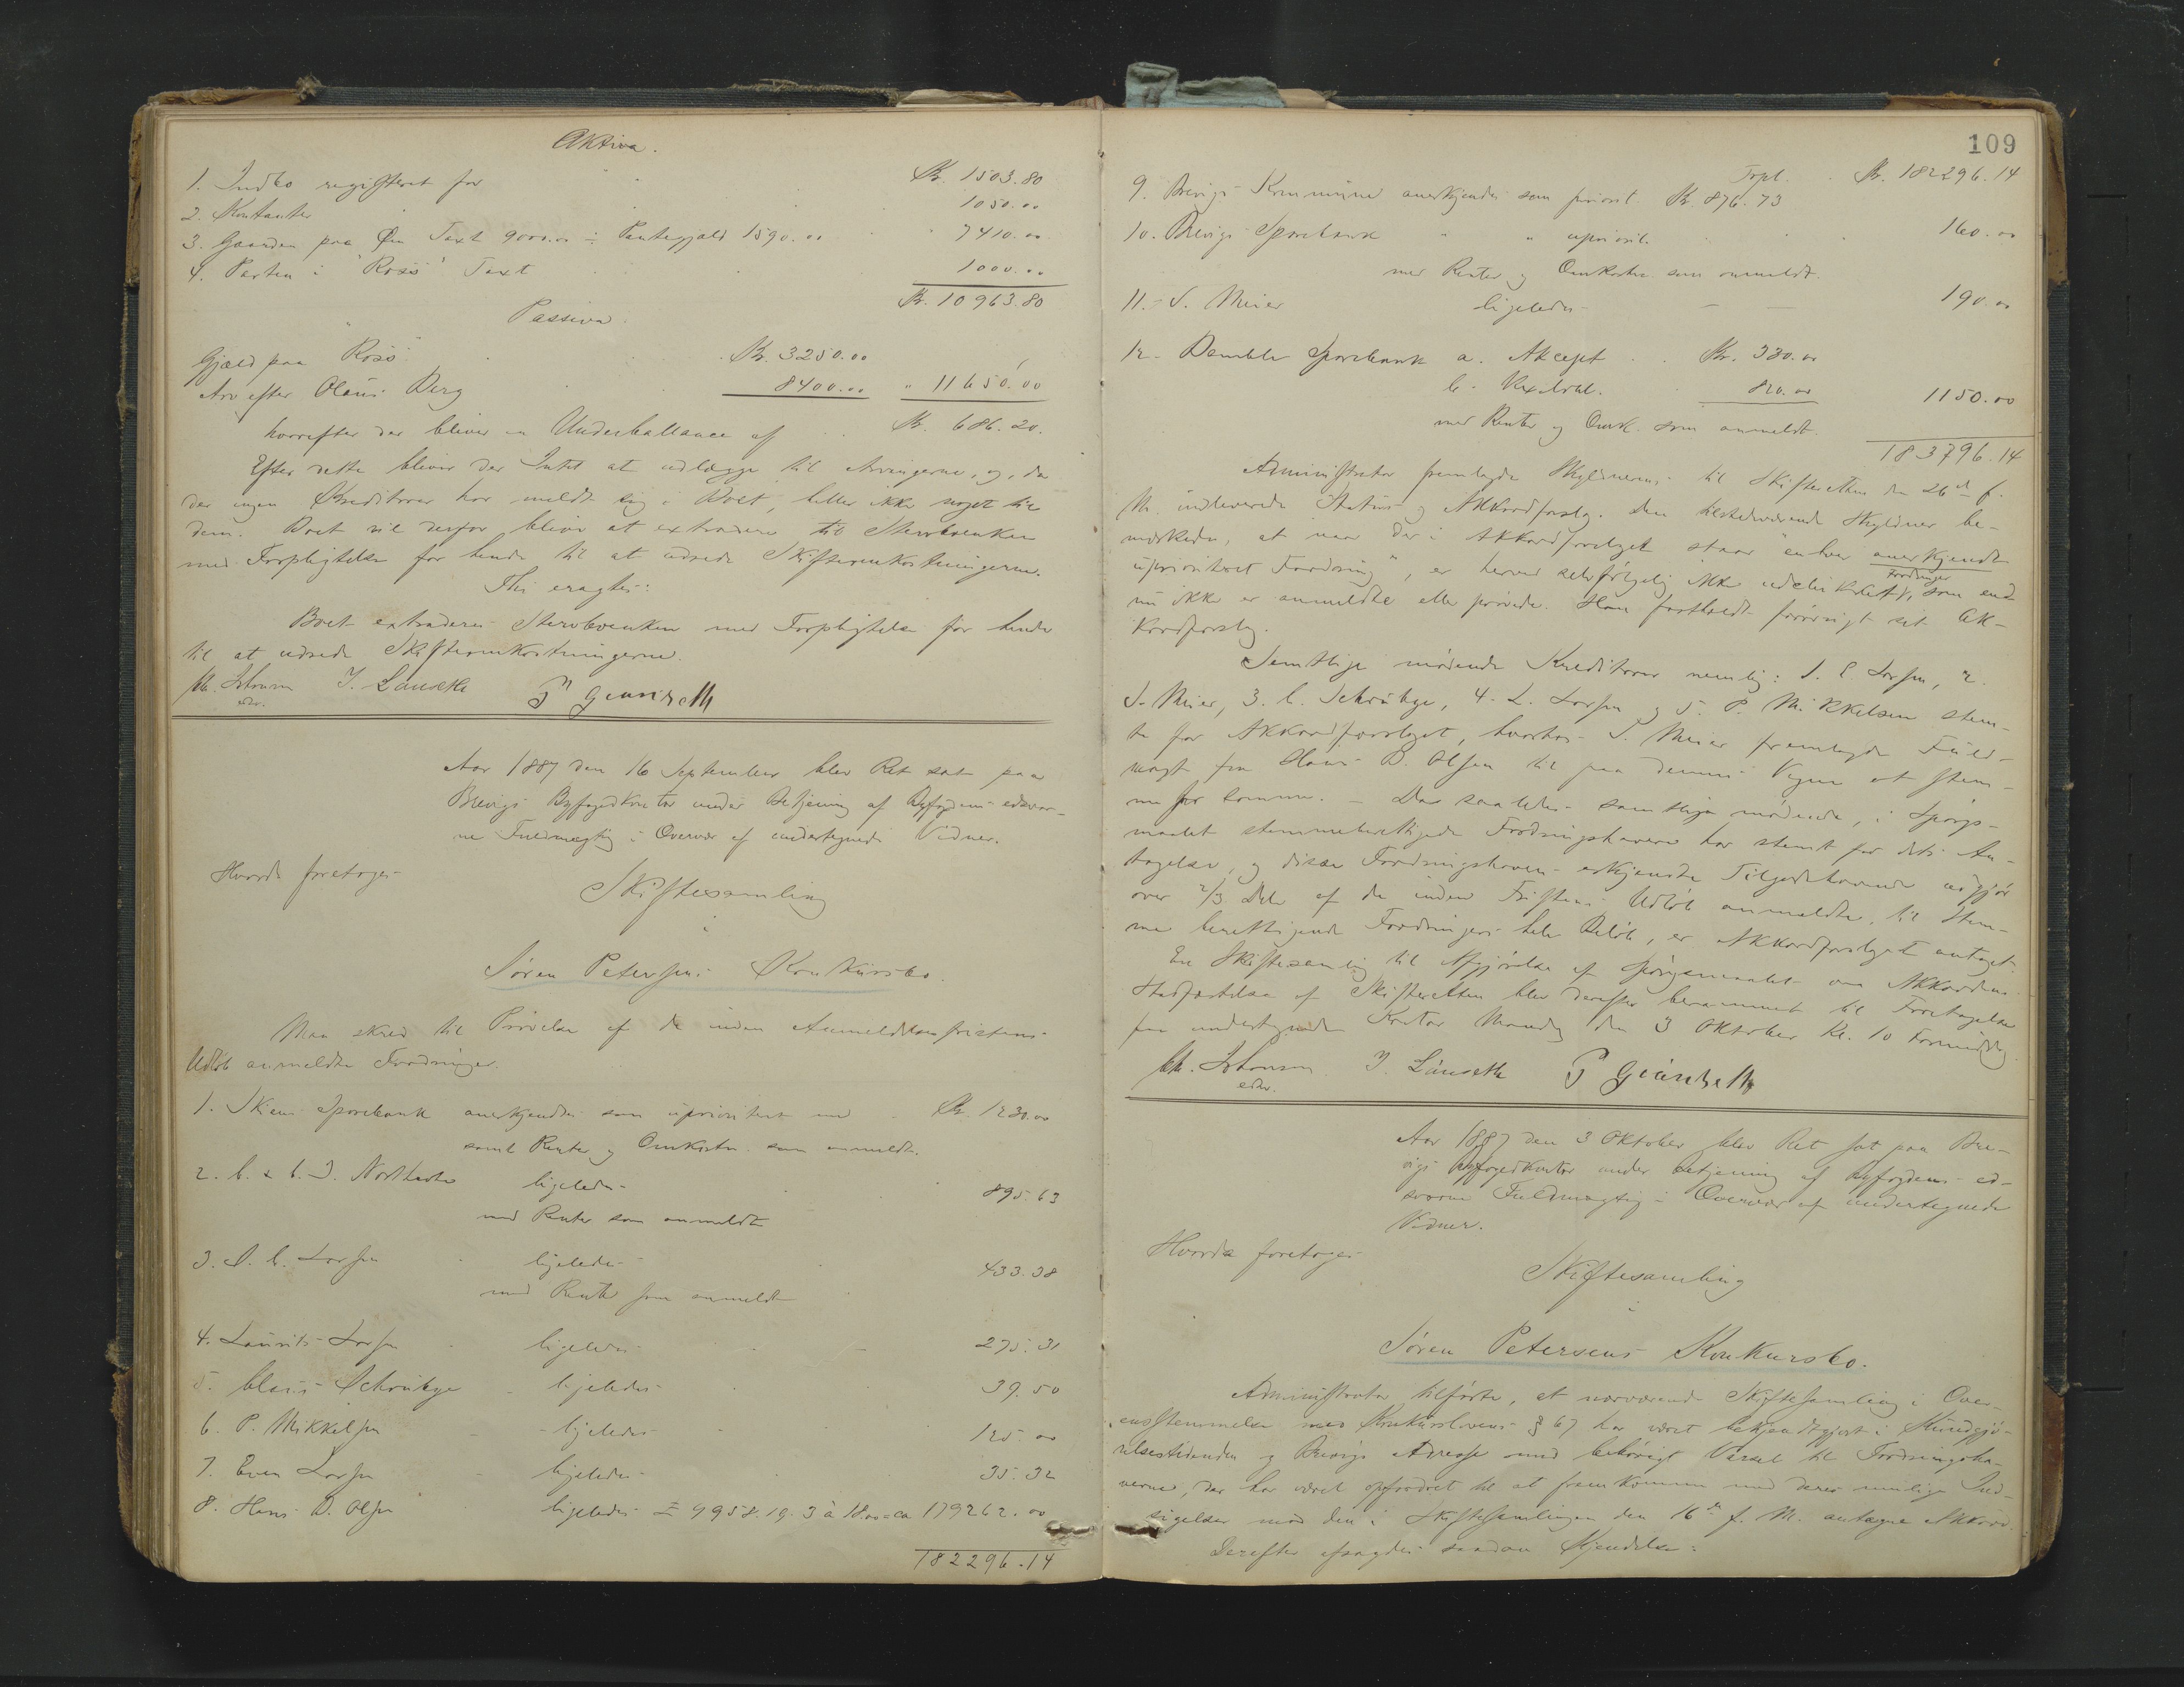 Aktiva.
1. Indbo registreret for Kr. 1503.80
2. Kontanter 1050.00
3. Gaarden paa Øen Taxt 9000.00 ÷ Pantegjæld 1590.00 7410.00
4. Parten i "Ross" Taxt 1000.00
Kr. 10963.80
Passiva.
Gjæld paa "Ross" Kr. 3250.00
Arv efter Olaus Berg 8400.00 " 11650.00
hvorefter der bliver en Underballance af Kr. 686.20.
Efter dette bliver der Intet at udlægge til Arvingerne, og, da
der ingen Kreditorer har meldt sig i Boet, heller ikke noget til
dem. Boet vil derfor blive at extradere til Stervboenken
med Forpligtelse for hende til at udrede Skifteomkostningerne.
Thi eragtes:
Boet extraderes Stervboenken med Forpligtelse for hende
til at udrede Skifteomkostningerne.
Chr. Johnsen J. Lauseth
edsv.
Aar 1887 den 16 September blev Ret sat paa
Brevigs Byfogedkontor under Betjening af Byfogdens edsvor-
ne Fuldmægtig i Overvær af undertegnede Vidner.
Hvorda foretoges
Skiftesamling
i
Søren Petersens Konkursbo.
Man skred til Prøvelse af de inden Anmeldelsesfristens
Udløb anmeldte Fordringer.
1. Skiens Sparebank anerkjendtes som uprioritert med Kr. 1230.00
samt Renter og Omkostn. som anmeldt.
2. C. & C. J. ligeledes 895.63
med Renter som anmeldt
3. S. C. Larsen ligeledes 433.38
med Renter som anmeldt
4. Laurits Larsen ligeledes 275.31
5. Claus Schrubye ligeledes 39.50
6. P. Mikkelsen ligeledes 125.00
7. Even Larsen ligeledes 35.32
8. Hans B. Olsen ligeledes £ 9958.19.3 à 18.00 = ca 179262.00
182296.14
109
Trpt. Kr. 182296.14
9. Brevigs Kommune anerkjendes som priorit. Kr. 876.73
10. Brevigs Sparebank " " upriorit. 160.00
med Renter og Omkostn. som anmeldt.
11. S. Meier ligeledes 190.00
12. Bamble Sparebank a. Akcept Kr. 330.00
b. 820.00 1150.00
med Renter og Omk. som anmeldt.
183796.14
Administrator fremlagde Skyldnerens til Skifteretten den 26de f.
M. indleverede Status og Akkordforslag. Den tilstedeværende Skyldner be-
mærkede, at naar der i Akkordforslaget staar "enhver anerkjendt
uprioriteret Fordring", er herved selvfølgelig ikke udelukket Fordringer, som end-
nu ikke er anmeldte eller prøvede. Han fastholdt forøvrigt sit Ak-
kordforslag.
Samtlige mødende Kreditorer nemlig: S. C. Larsen, 2.
S. Meier, 3. C. Schrubye, 4. L. Larsen og 5. P. Mikkelsen stem-
te for Akkordforslaget, hvorhos S. Meier fremlagde Fuld-
magt fra Hans B. Olsen til paa dennes Vegne at stem-
me for samme. – Da saaledes samtlige mødende, i Spørgs-
maalet stemmeberettigede Fordringshavere har stemt for dets An-
tagelse, og disse Fordringshaveres erkjendte Tilgodehavende udgjør
over 2/3 Dele af de inden Fristens Udløb anmeldte, til Stem-
me berettigende Fordringers hele Beløb, er Akkordforslaget antaget.
En Skiftesamling til Afgjørelse af Spørgsmaalet om Akkordens
Stadfæstelse af Skifteretten blev derefter berammet til Foretagelse
paa undertegnede Kontor Mandag den 3 Oktober Kl. 10 Formiddag.
Chr. Johnsen J. Lauseth
edsv.
Aar 1887 den 3 Oktober blev Ret sat paa Bre-
vigs Byfogedkontor under Betjening af Byfogdens ed-
svorne Fuldmægtig i Overvær af undertegnede
Vidner.
Hvorda foretoges
Skiftesamling
i
Søren Petersens Konkursbo.
Administrator tilførte, at nærværende Skiftesamling i Over-
ensstemmelse med Konkurslovens § 67 har været bekjendtgjort i Kundgjø-
relsestidenden og Brevigs Adresse med behørigt Varsel til Fordringsha-
verne, der har været opfordret til at fremkomme med deres mulige Ind-
sigelser mod den i Skiftesamlingen den 16de f. M. antagne Akkord.
Derefter afsagdes saadan Kjendelse: